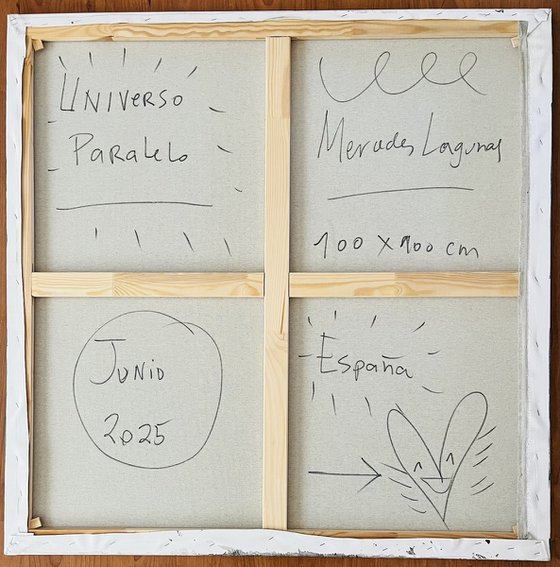 Universo
Paralelo
Mercedes Lagunas
100 x 100 cm
Junio
2025
España